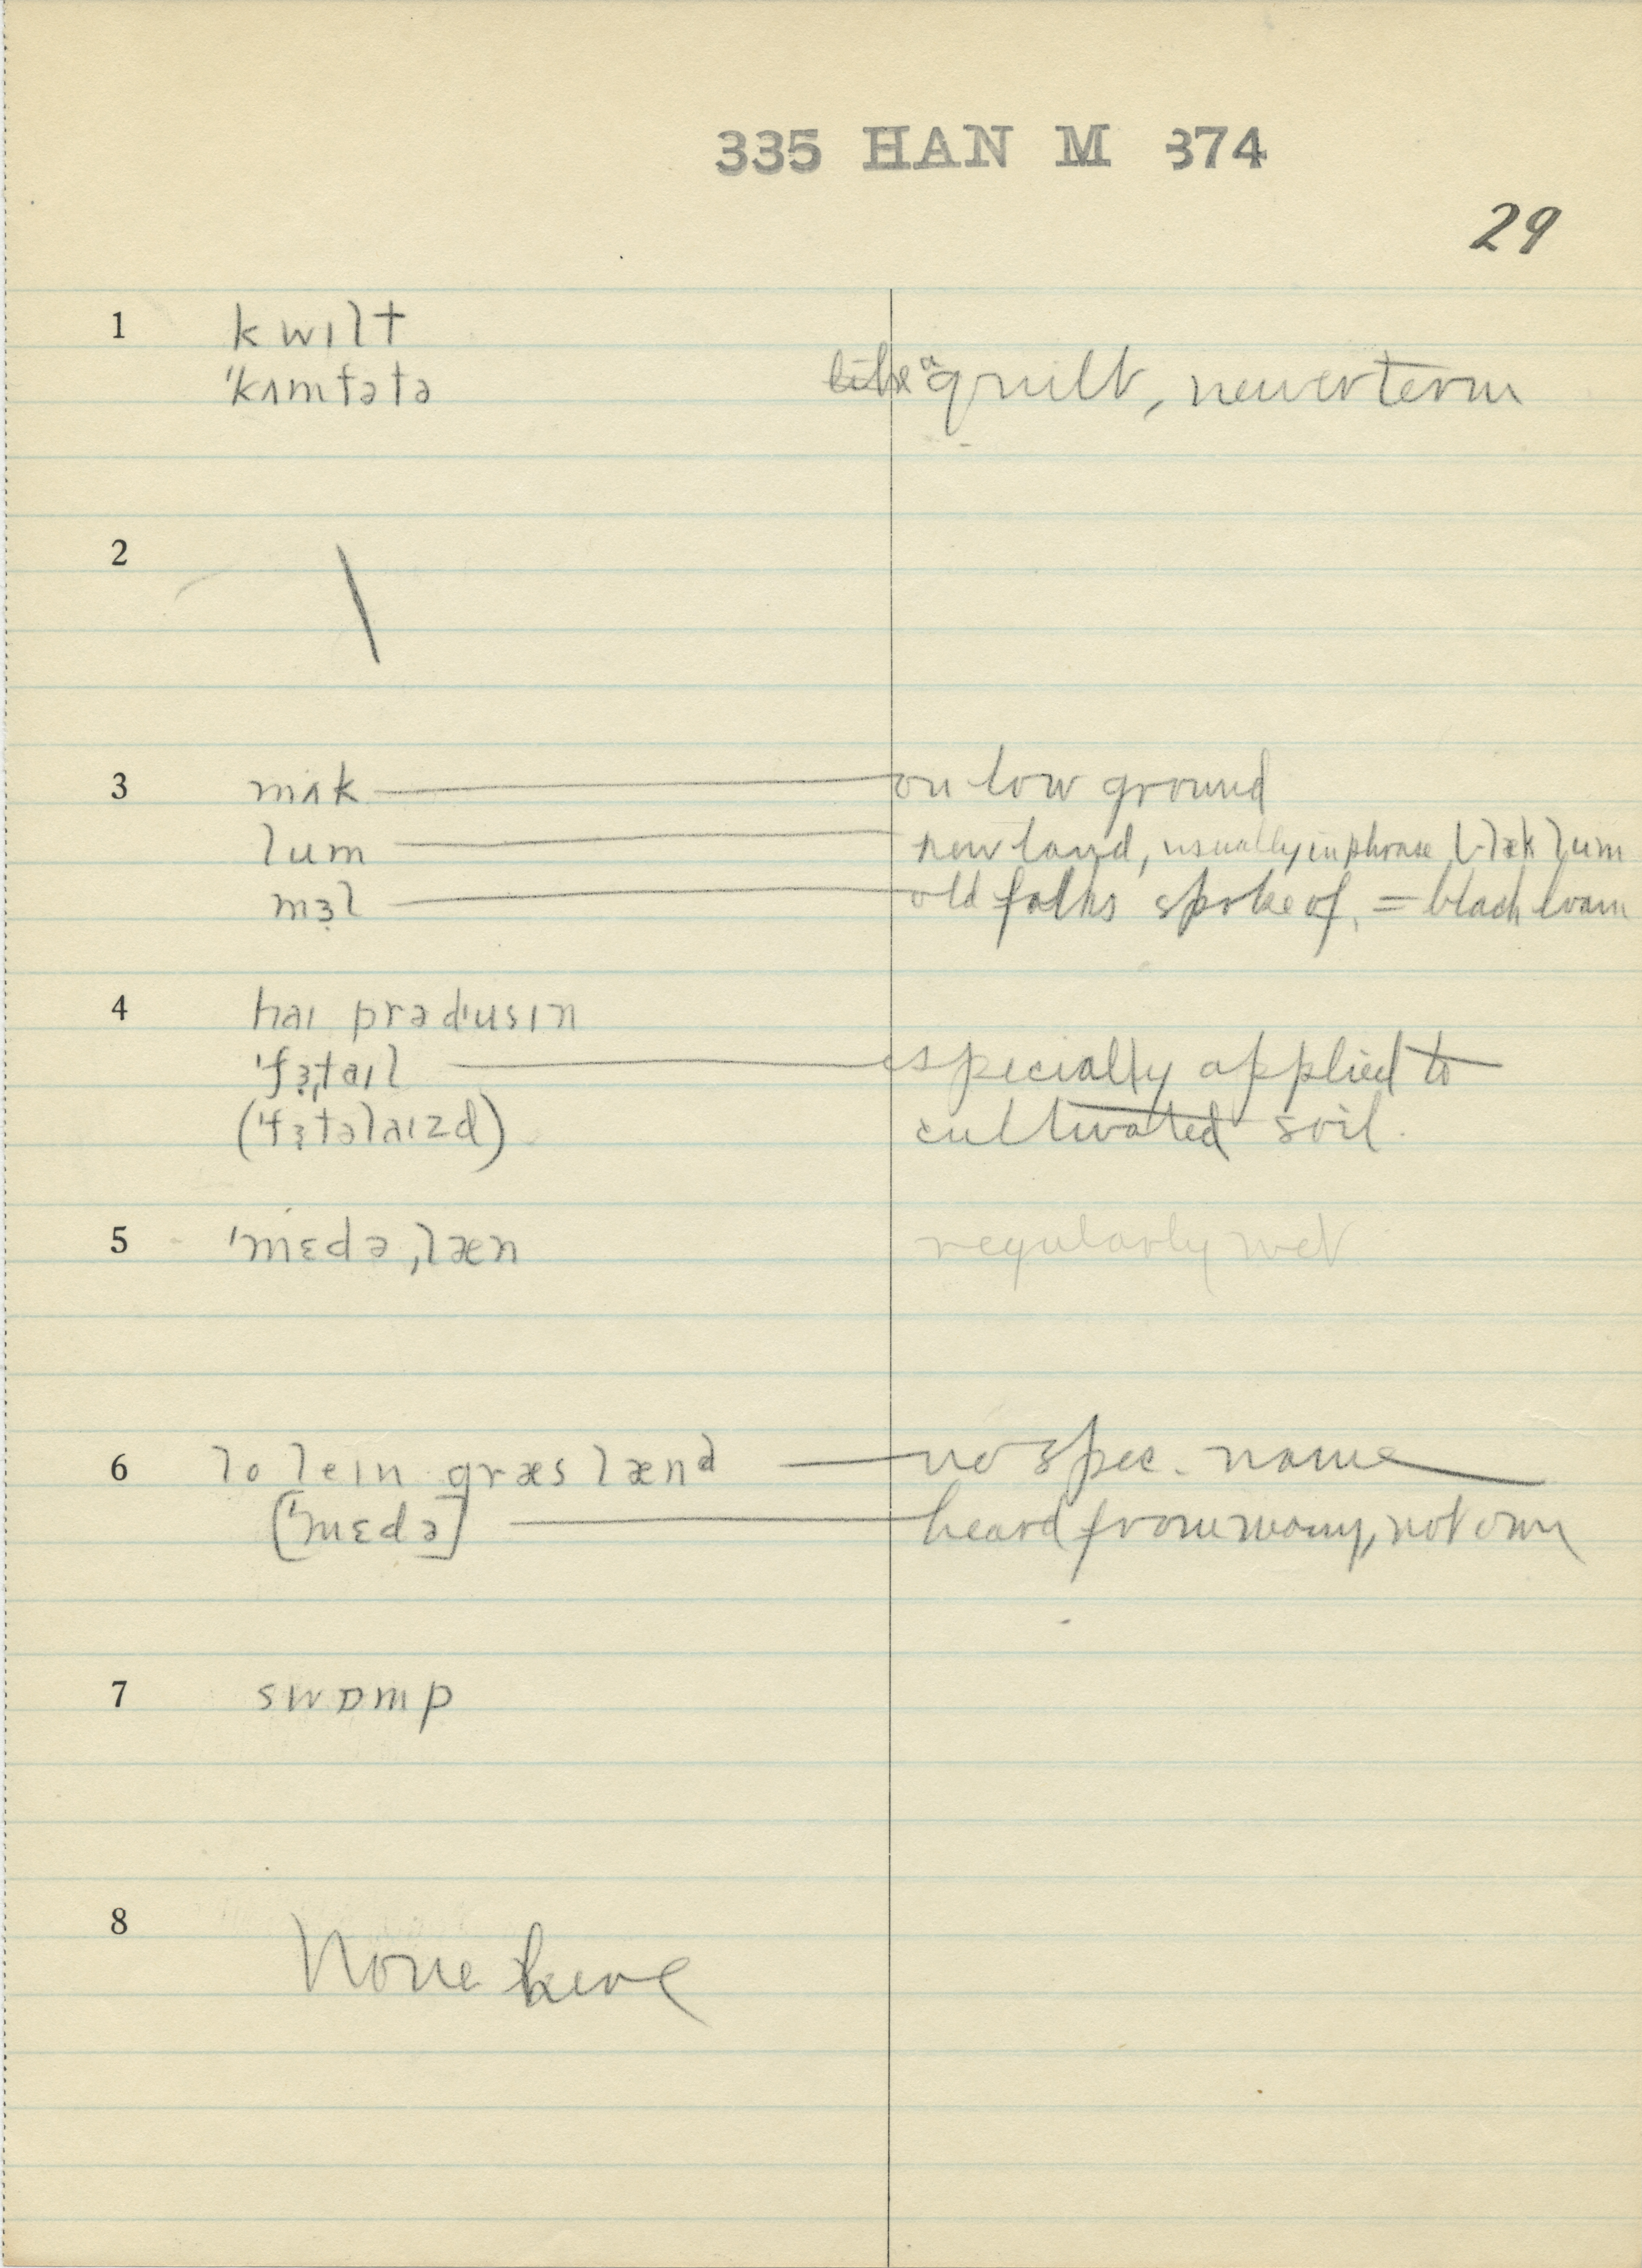 335 HAN M 374
29
1 kwɪlt
'kʌmfətə like a quilt, newer term
2 \
3 mʌk — on low ground
lum — new land, usually in phrase blæk lum
mɜl — old folks spoke of, = black loam
4 haɪ prədusɪn
'fɜtaɪl — especially applied to
('fɜtəlaɪzd) cultivated soil.
5 'mɛdə ˌlæn regularly wet
6 lo leɪn græs lænd — no spec. name
['mɛdə] — heard from many, not own
7 swɒmp
8 None here